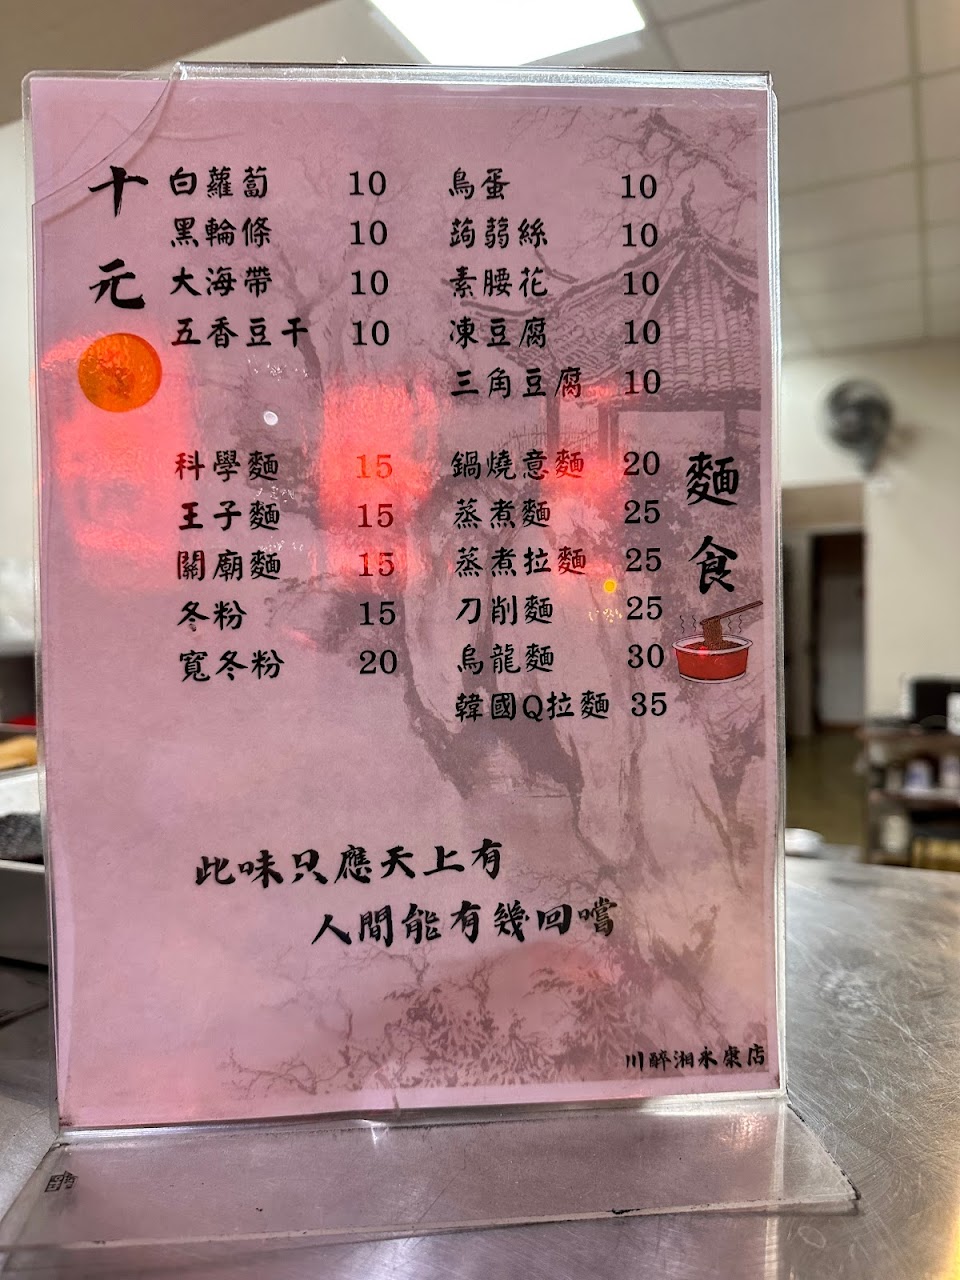 十元
白蘿蔔 10
黑輪條 10
大海帶 10
五香豆干 10
鳥蛋 10
蒟蒻絲 10
素腰花 10
凍豆腐 10
三角豆腐 10
麵食
科學麵 15
王子麵 15
關廟麵 15
冬粉 15
寬冬粉 20
鍋燒意麵 20
蒸煮麵 25
蒸煮拉麵 25
刀削麵 25
烏龍麵 30
韓國Q拉麵 35
此味只應天上有
人間能有幾回嚐
川醉湘永康店